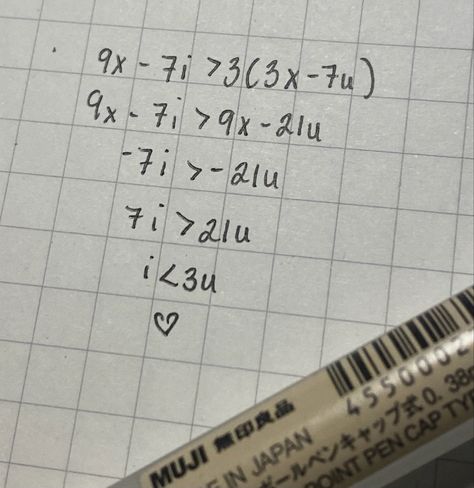 9x - 7i > 3(3x - 7u)
9x - 7i > 9x - 21u
-7i > -21u
7i > 21u
i < 3u
♡
MUJI 無印良品
455000
E IN JAPAN
ボールペンキャップ式 0.38
POINT PEN CAP TYP